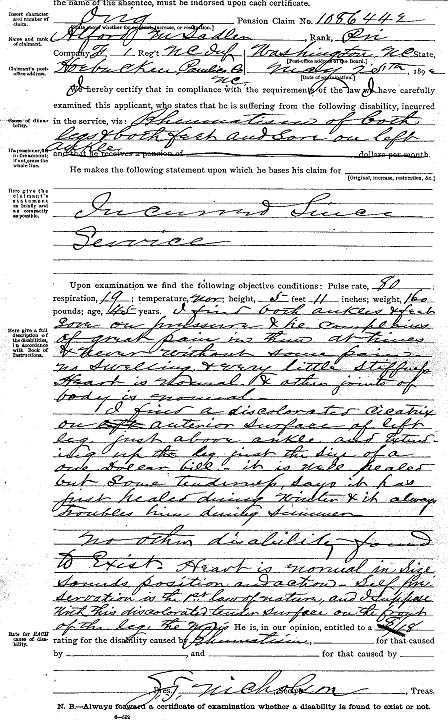 the absence of a member, must be indorsed upon each certificate.
Insert character of claim. Orig Pension Claim No. 1086442
[State whether for increase, or restoration.]
Name and rank of claimant. McSadler, Rank, Pri
Company I 1 Reg't N.C. Inf Washington N.C. State,
[Post-office address of the Board.]
Claimant's post-office address. Hoebucken Pamlico Co NC May 28th, 189
[Date of examination.]
We hereby certify that in compliance with the requirements of the law we have carefully
examined this applicant, who states that he is suffering from the following disability, incurred
Cause of disability. in the service, viz: Rheumatism of both
legs & both feet and Sore on left
ankle
If a pensioner, fill in the amount; if not, erase the whole line. and that he receives a pension of dollars per month.
He makes the following statement upon which he bases his claim for
[Original, increase, restoration, &c.]
Here give the claimant's statement as briefly and as compactly as possible.
Incurred Since
Service
Upon examination we find the following objective conditions: Pulse rate, 80
respiration, 19; temperature, nor, height, 5 feet 11 inches; weight, 160
pounds; age, 48 years. I find both ankles & feet
Here give a full description of the disabilities, in accordance with Book of Instructions.
Sore on pressure & he complains
of great pain in them at times
& never without some pain -
no swelling & very little stiffness
Heart is normal & other joints of
body is normal -
I find a discolorated cicatrix
on anterior surface of left
leg just above ankle and extend-
ing up the leg just the size of a
one dollar bill - it is well healed
but some tenderness, says it has
just healed during Winter & it always
troubles him during summer
No other disability found
to Exist. Heart is normal in size
sounds, position and action - Self Pre
servation is the 1st law of nature, and I suppose
with this discolorated tender surface on the front
of the leg He is, in our opinion, entitled to a 8/18
Rate for EACH cause of disability. rating for the disability caused by Rheumatism, for that caused
by , and for that caused by
J. T. Nicholson, Treas.
N. B.—Always forward a certificate of examination whether a disability is found to exist or not.
6—552